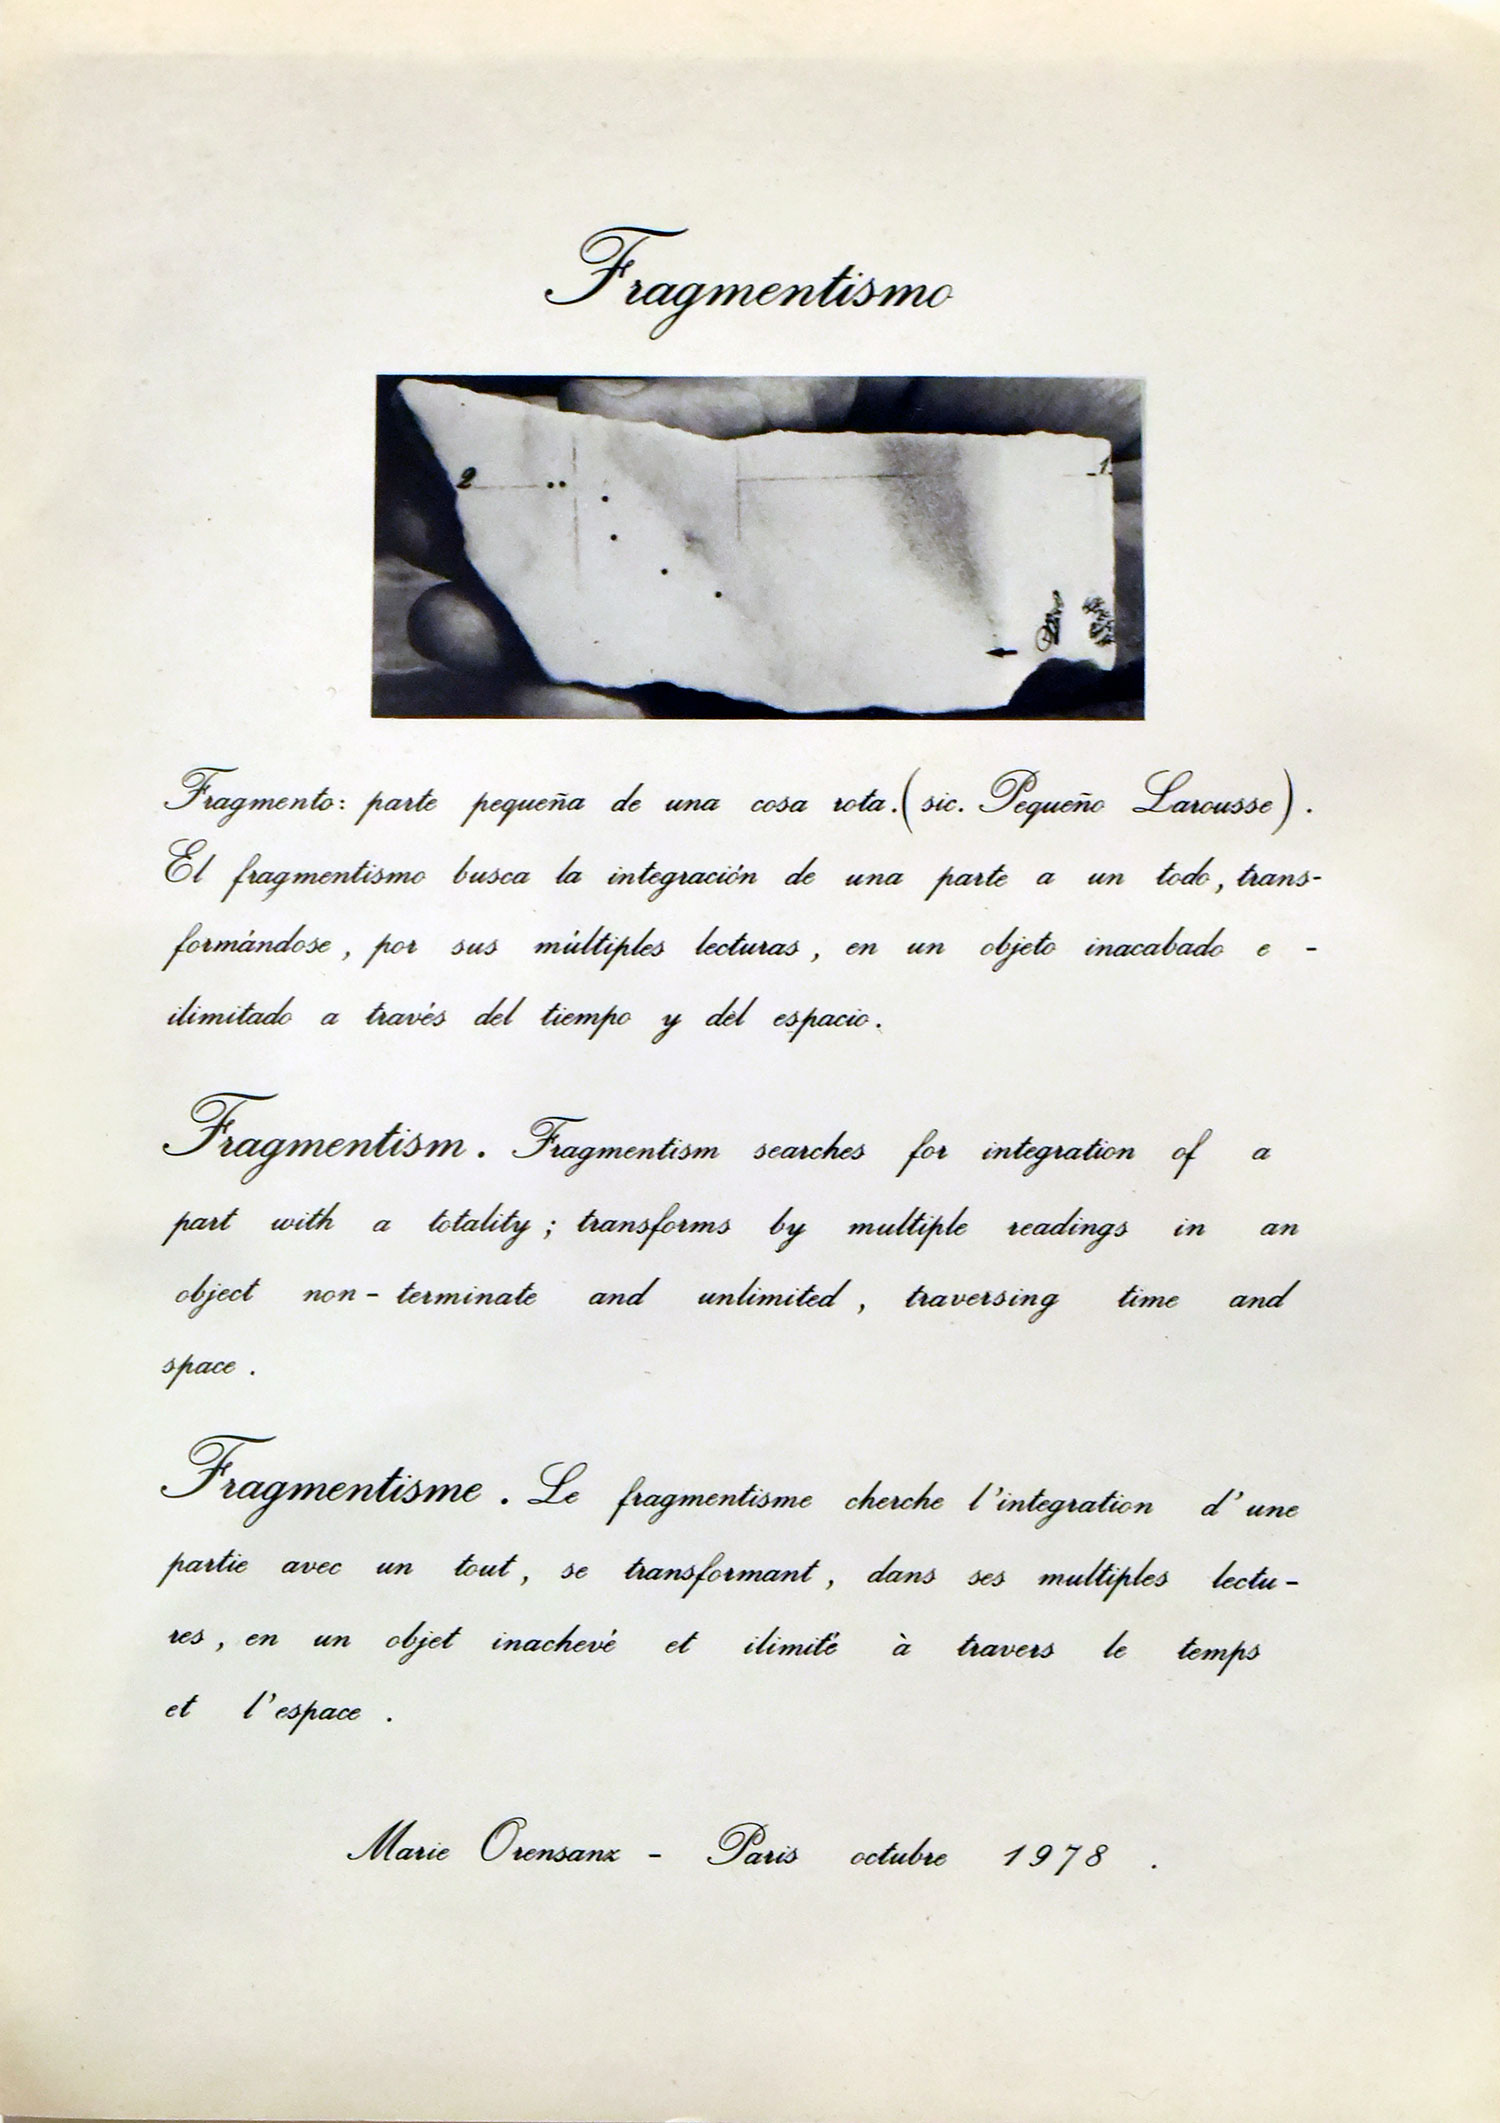 Fragmentismo
2
1
Fragmento: parte pequeña de una cosa rota. (sic. Pequeño Larousse).
El fragmentismo busca la integración de una parte a un todo, trans-
formándose, por sus múltiples lecturas, en un objeto inacabado e -
ilimitado a través del tiempo y del espacio.
Fragmentism. Fragmentism searches for integration of a
part with a totality; transforms by multiple readings in an
object non-terminate and unlimited, traversing time and
space.
Fragmentisme. Le fragmentisme cherche l'integration d'une
partie avec un tout, se transformant, dans ses multiples lectu-
res, en un objet inachevé et ilimité à travers le temps
et l'espace.
Marie Orensanz - Paris octubre 1978.